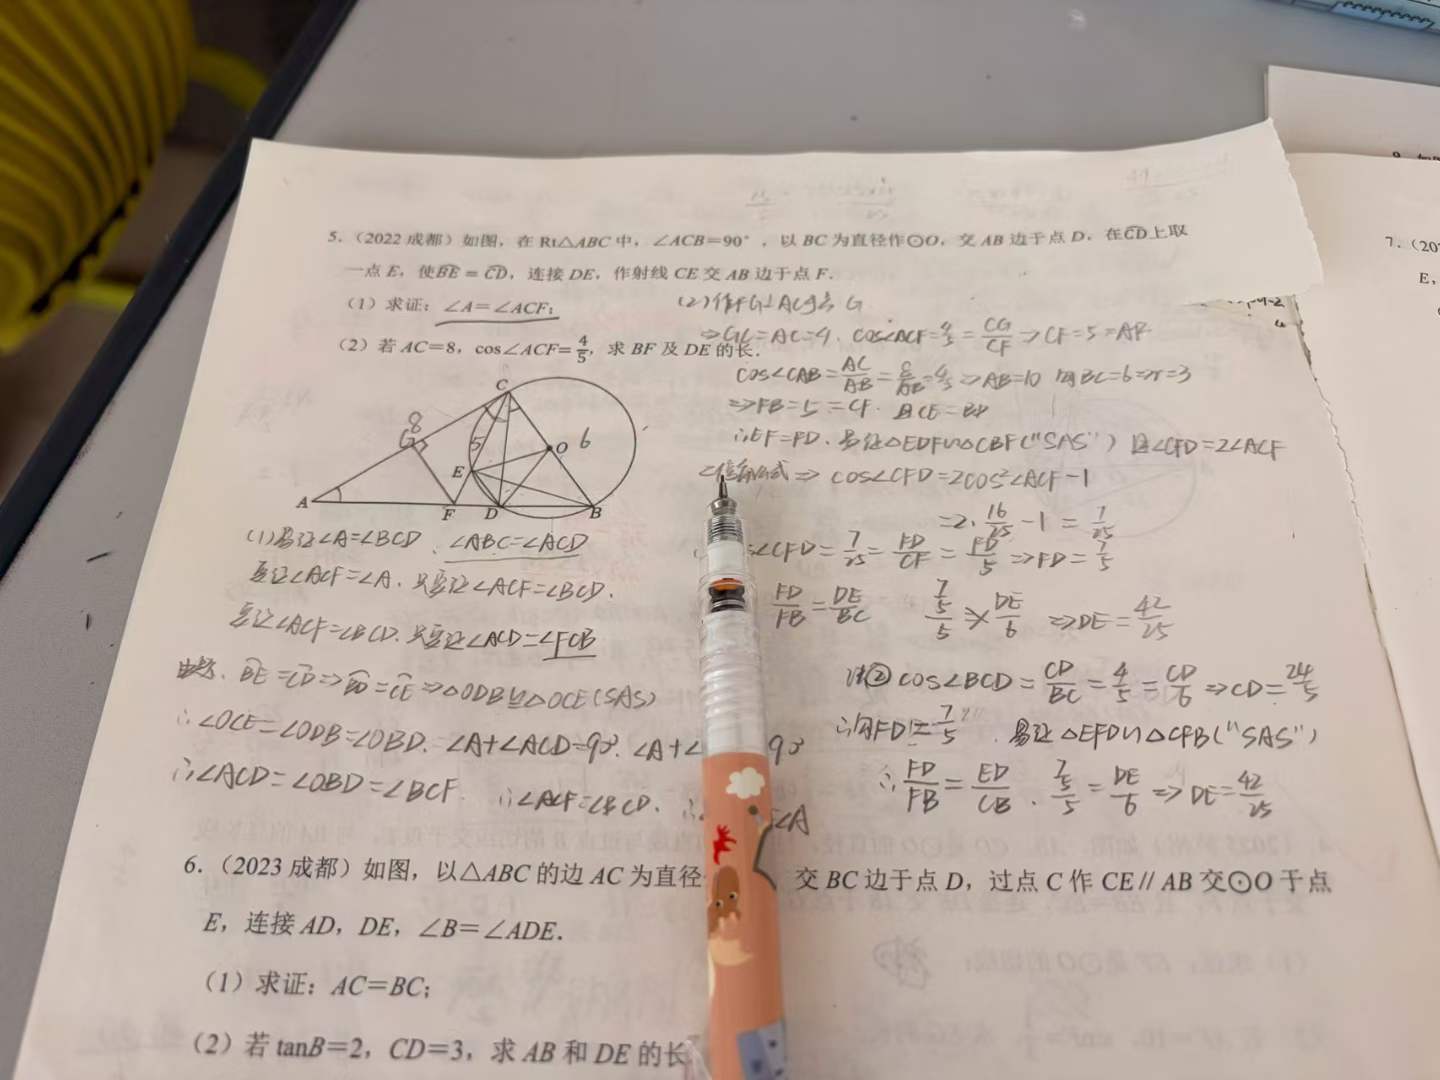 5.（2022 成都）如图，在 Rt△ABC 中，∠ACB=90°，以 BC 为直径作⊙O，交 AB 边于点 D，在C͡D上取
一点 E，使B͡E = C͡D，连接 DE，作射线 CE 交 AB 边于点 F.
（1）求证：∠A=∠ACF；
（2）若 AC=8，cos∠ACF=4/5，求 BF 及 DE 的长.
(2)作FG⊥AC于点G
⇒GC=AC=4. cos∠ACF=4/5=CG/CF⇒CF=5=AF
cos∠CAB=AC/AB=8/AB=4/5⇒AB=10 BC=6⇒r=3
⇒FB=5=CF. 且CE=BD
∴EF=FD. 易证△EDF∽△CBF("SAS") ∠CFD=2∠ACF
⇒ cos∠CFD=2cos²∠ACF-1
=2·16/25-1=7/25
∠CFD=7/25=FD/CF=FD/5⇒FD=7/5
FD/FB=DE/BC 7/5/5 DE/6 ⇒DE=42/25
法② cos∠BCD=CD/BC=4/5=CD/6⇒CD=24/5
∴FD=7/5. 易证△EFD∽△CFB("SAS")
∴FD/FB=ED/CB. 7/5/5=DE/6⇒DE=42/25
C
8
G
5
O
6
E
A
F
D
B
(1)易证∠A=∠BCD、∠ABC=∠ACD
要证∠ACF=∠A. 只要证∠ACF=∠BCD.
要证∠ACF=∠BCD. 只要证∠ACD=∠FCB
B͡E=C͡D⇒B͡D=C͡E⇒△ODB≌△OCE(SAS)
∴∠OCE=∠ODB=∠OBD. ∠A+∠ACD=90°. ∠A+∠ 90°
∴∠ACD=∠OBD=∠BCF. ∴∠ACF=∠BCD. ∴ ∠A
6.（2023 成都）如图，以△ABC 的边 AC 为直径 交 BC 边于点 D，过点 C 作 CE∥AB 交⊙O 于点
E，连接 AD，DE，∠B=∠ADE.
（1）求证：AC=BC；
（2）若 tanB=2，CD=3，求 AB 和 DE 的长
7.（20
E，